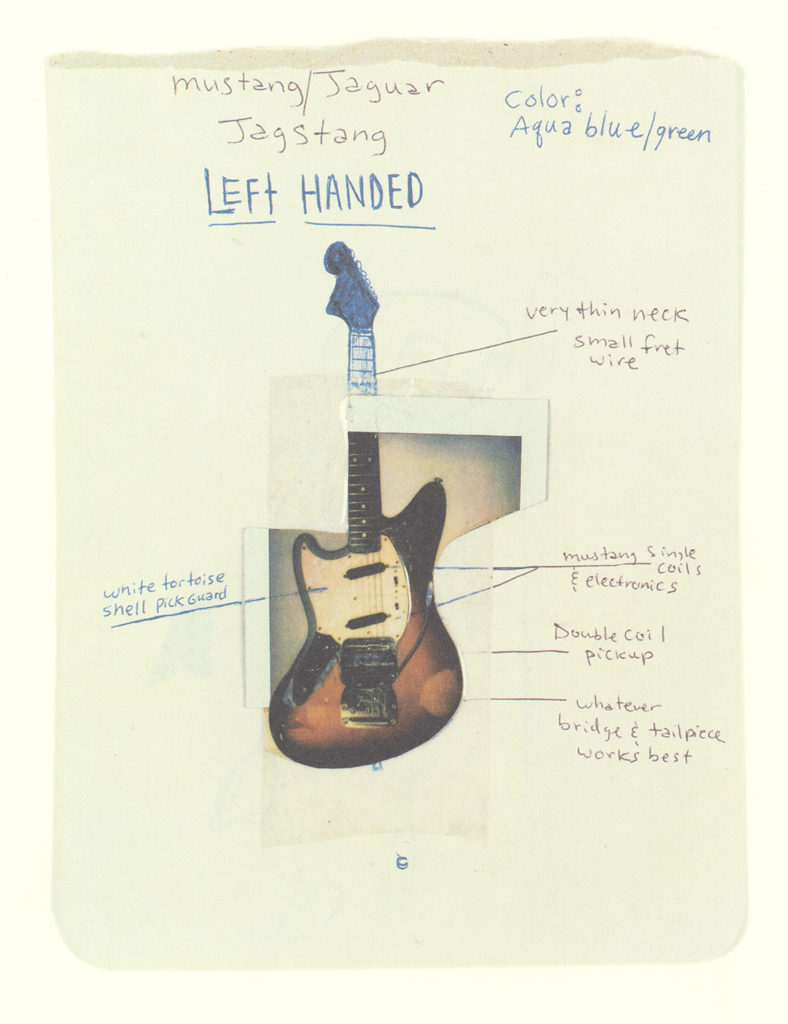 mustang/Jaguar
Jagstang
LEFT HANDED
Color:
Aqua blue/green
very thin neck
small fret
wire
mustang single
coils
& electronics
white tortoise
shell pickGuard
Double coil
pickup
whatever
bridge & tailpiece
works best